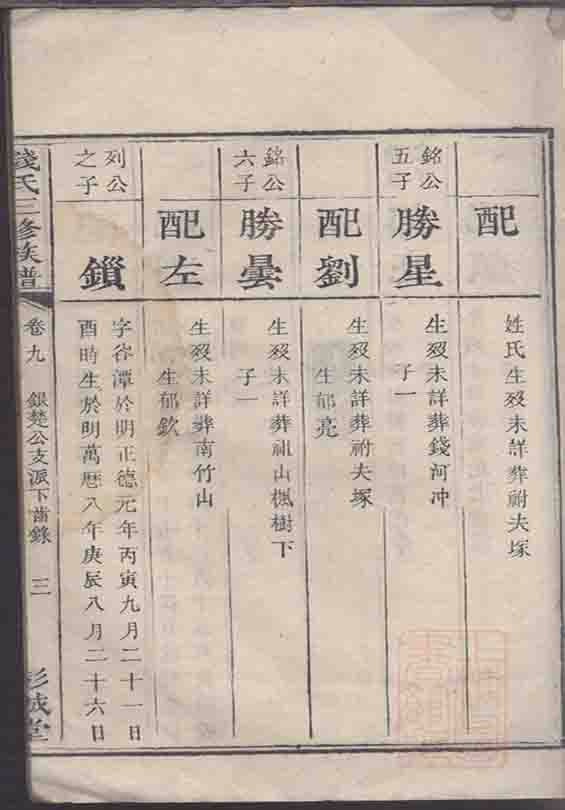 配
姓氏生殁未詳葬祔夫塚
銘公
五子
勝星
生殁未詳葬錢河冲
子一
配劉
生殁未詳葬祔夫塚
生郁亮
銘公
六子
勝曇
生殁未詳葬祖山楓樹下
子一
配左
生殁未詳葬南竹山
生郁欽
列公
之子
鎖
字谷潭於明正德元年丙寅九月二十一日
酉時生於明萬曆八年庚辰八月二十六日
錢氏三修族譜
卷九
銀楚公支派下齒錄
三
彭城堂